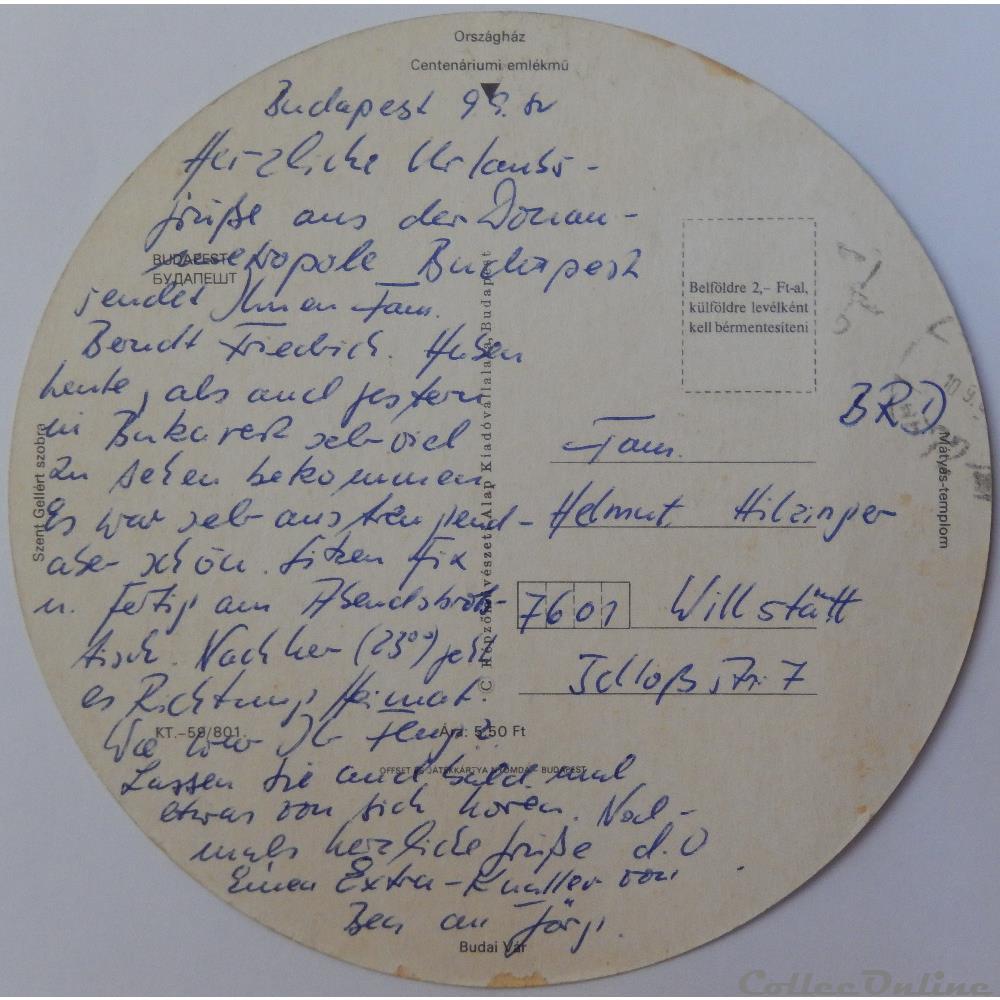 Országház
Centenáriumi emlékmű
Budapest 9.9.
Herzliche Urlaubs-
grüße aus der Donau-
metropole Budapest
BUDAPEST
БУДАПЕШТ
sendet Ihnen Fam.
Berndt Friedrich. Haben
heute, als auch gestern
in Bukarest sehr viel
zu sehen bekommen
Es war sehr anstrengend-
aber schön. Sitzen Fix
u. Fertig am Abendsbrot-
tisch. Nachher (23⁰⁰) geht
es Richtung Heimat.
KT.-59/801.
Ára: 5,50 Ft
Wie war Ihr Flug?
OFFSET ÉS JÁTÉKKÁRTYA NYOMDA - BUDAPEST
Lassen Sie auch bald mal
etwas von sich hören. Noch-
mals herzliche Grüße d.O
Einen Extra-Knaller von
Ben an Jörg.
Budai Vár
Szent Gellért szobra
© Képzőművészeti Alap Kiadóvállalata, Budapest
Belföldre 2,– Ft-al,
külföldre levélként
kell bérmentesíteni
BRD
Fam.
Helmut Hilzinger
7601 Willstätt
Schloßstr. 7
Mátyás-templom
10.9.
CollecOnline